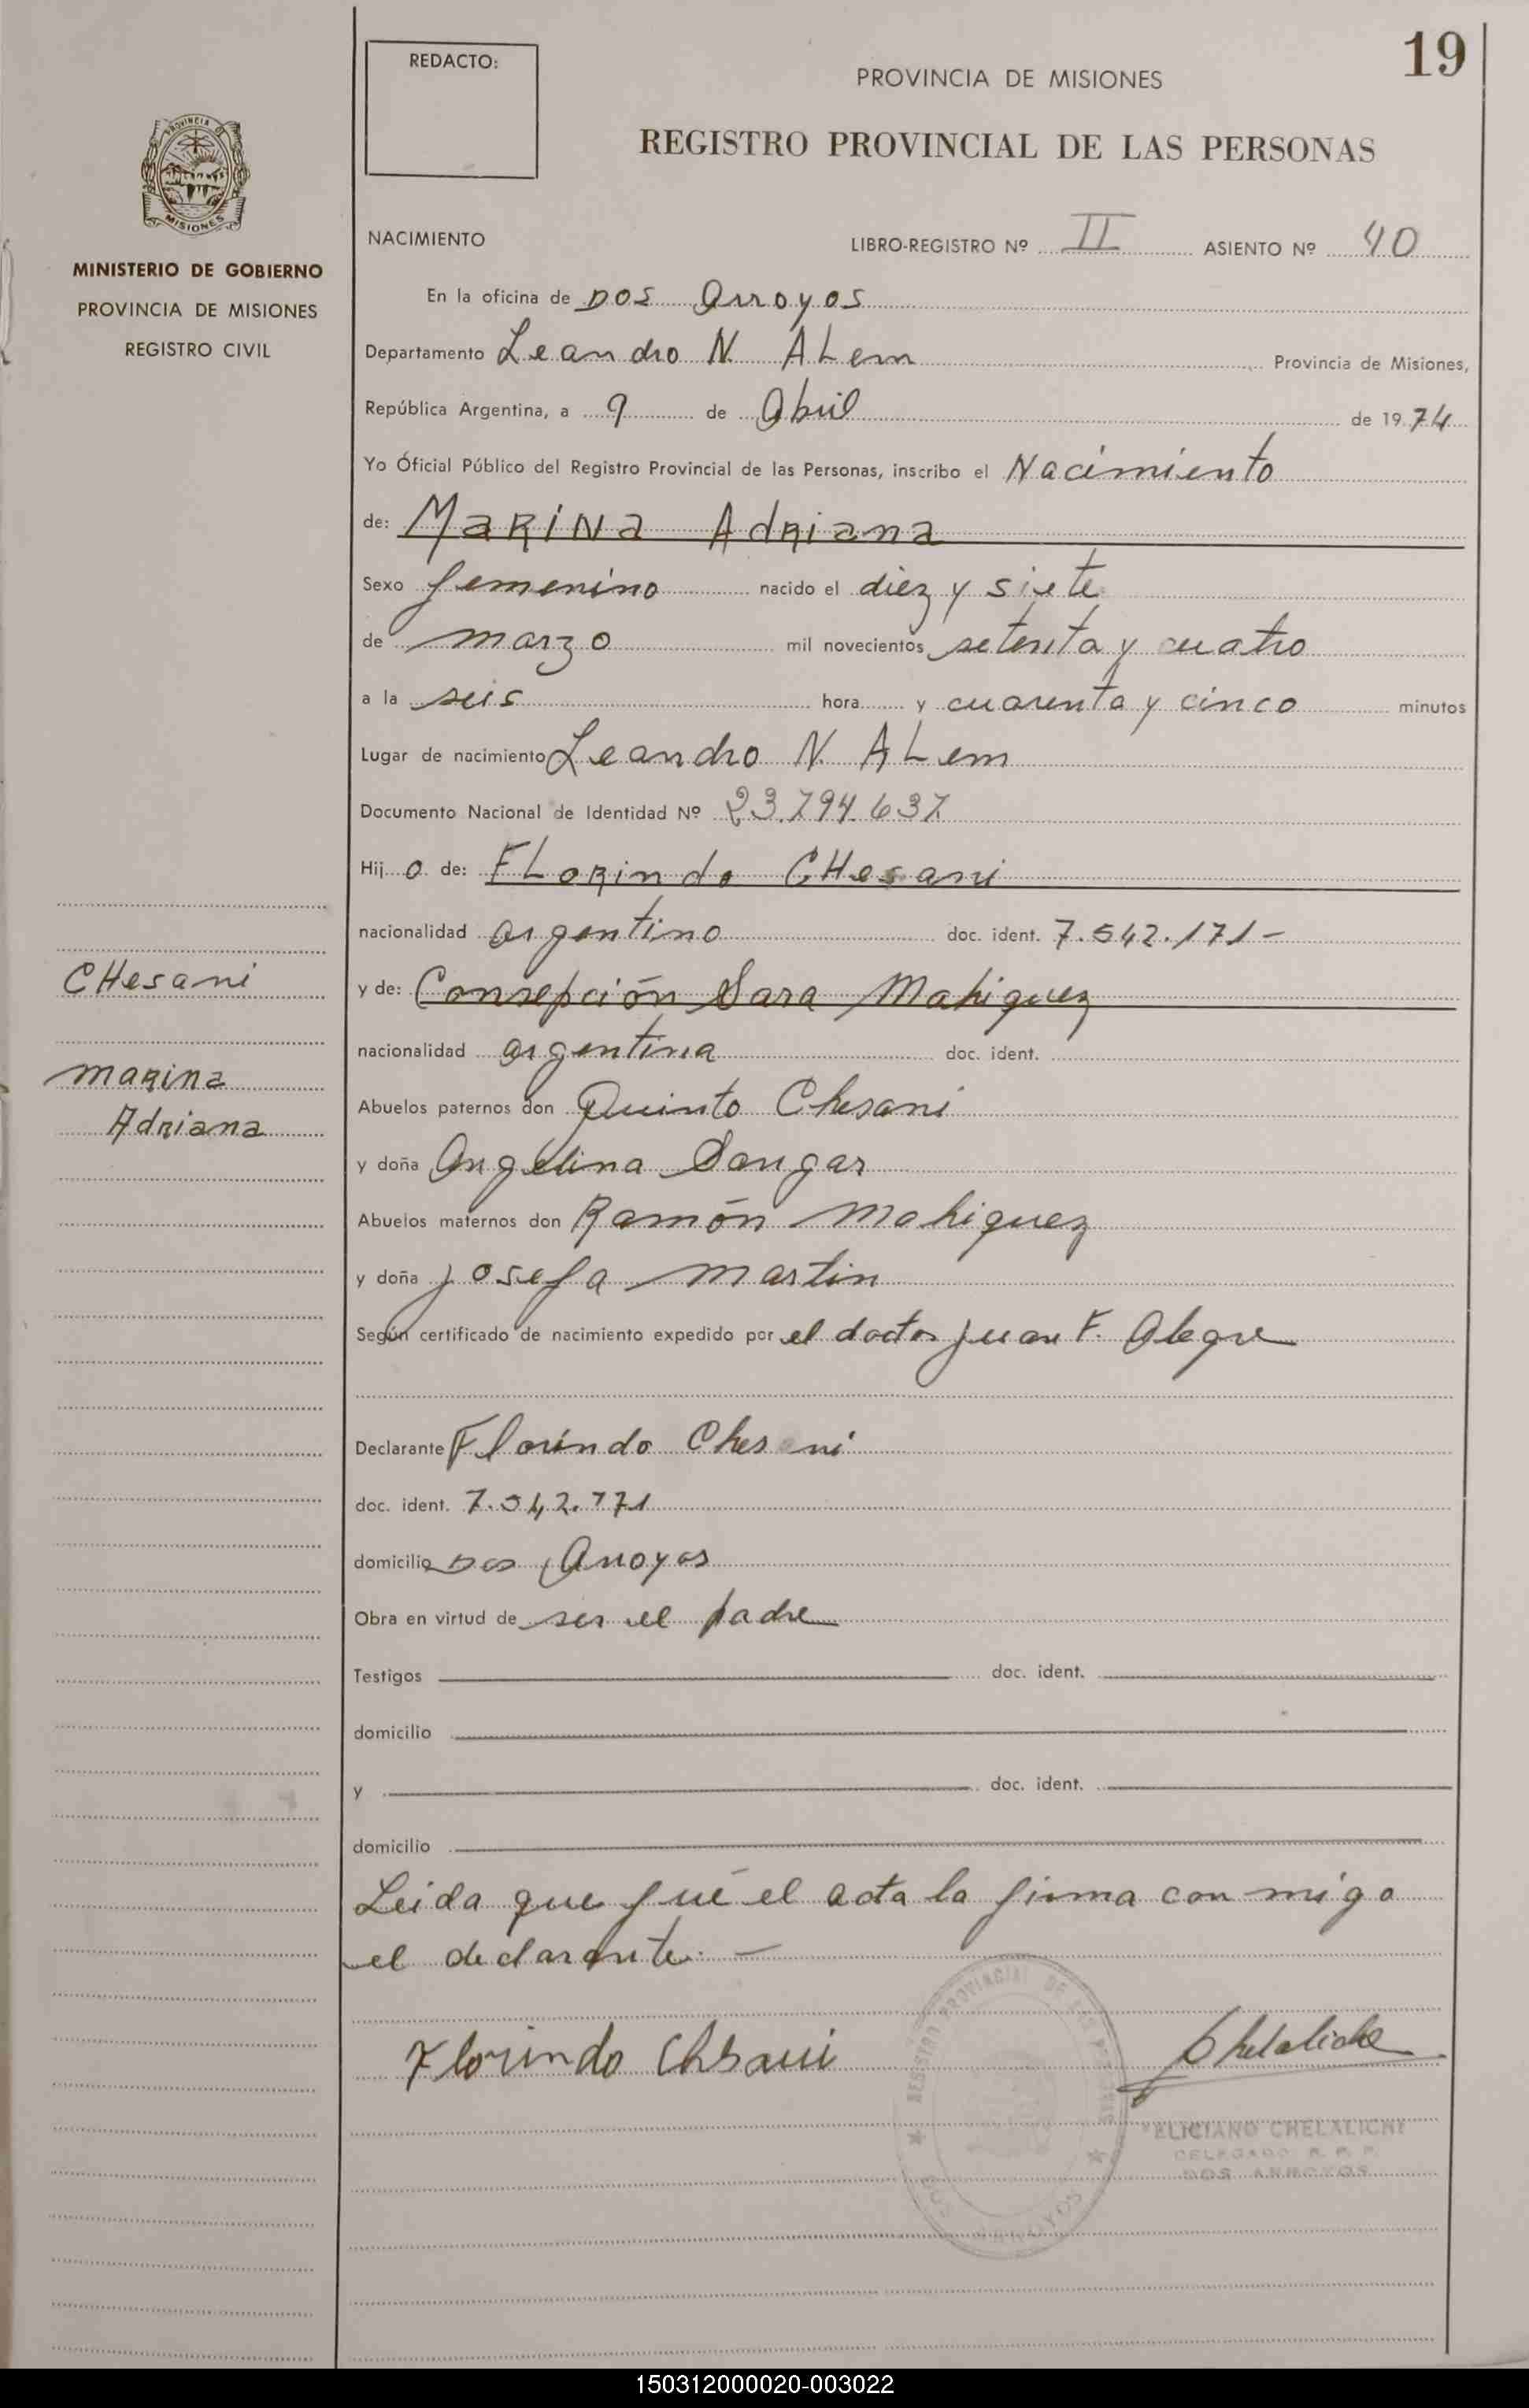 19
REDACTO:
PROVINCIA DE MISIONES
REGISTRO PROVINCIAL DE LAS PERSONAS
PROVINCIA DE
MISIONES
MINISTERIO DE GOBIERNO
PROVINCIA DE MISIONES
REGISTRO CIVIL
NACIMIENTO
LIBRO-REGISTRO Nº II ASIENTO Nº 40
En la oficina de Dos Arroyos
Departamento Leandro N. ALem Provincia de Misiones,
República Argentina, a 9 de Abril de 1974
Yo Oficial Público del Registro Provincial de las Personas, inscribo el Nacimiento
de: MARINA Adriana
Sexo femenino nacido el diez y siete
de marzo mil novecientos setenta y cuatro
a la seis hora y cuarenta y cinco minutos
Lugar de nacimiento Leandro N. ALem
Documento Nacional de Identidad Nº 23.794.637
Hij o de: FLorindo CHesani
nacionalidad argentino doc. ident. 7.542.171-
CHesani
y de: Consepción Sara Mahiquez
nacionalidad argentina doc. ident.
Marina
Adriana
Abuelos paternos don Quinto Chesani
y doña Angelina Songar
Abuelos maternos don Ramón Mahiquez
y doña Josefa Martin
Según certificado de nacimiento expedido por el doctor Juan F. Alegre
Declarante Florindo Chesani
doc. ident. 7.542.171
domicilio Dos Arroyos
Obra en virtud de ser el padre
Testigos doc. ident.
domicilio
y doc. ident.
domicilio
Leida que fué el acta la firma con migo
el declarante. —
Florindo Chesani
Chelaliche
REGISTRO PROVINCIAL DE LAS PERSONAS
DOS ARROYOS
FELICIANO CHELALICHE
DELEGADO R. P. P.
DOS ARROYOS
150312000020-003022